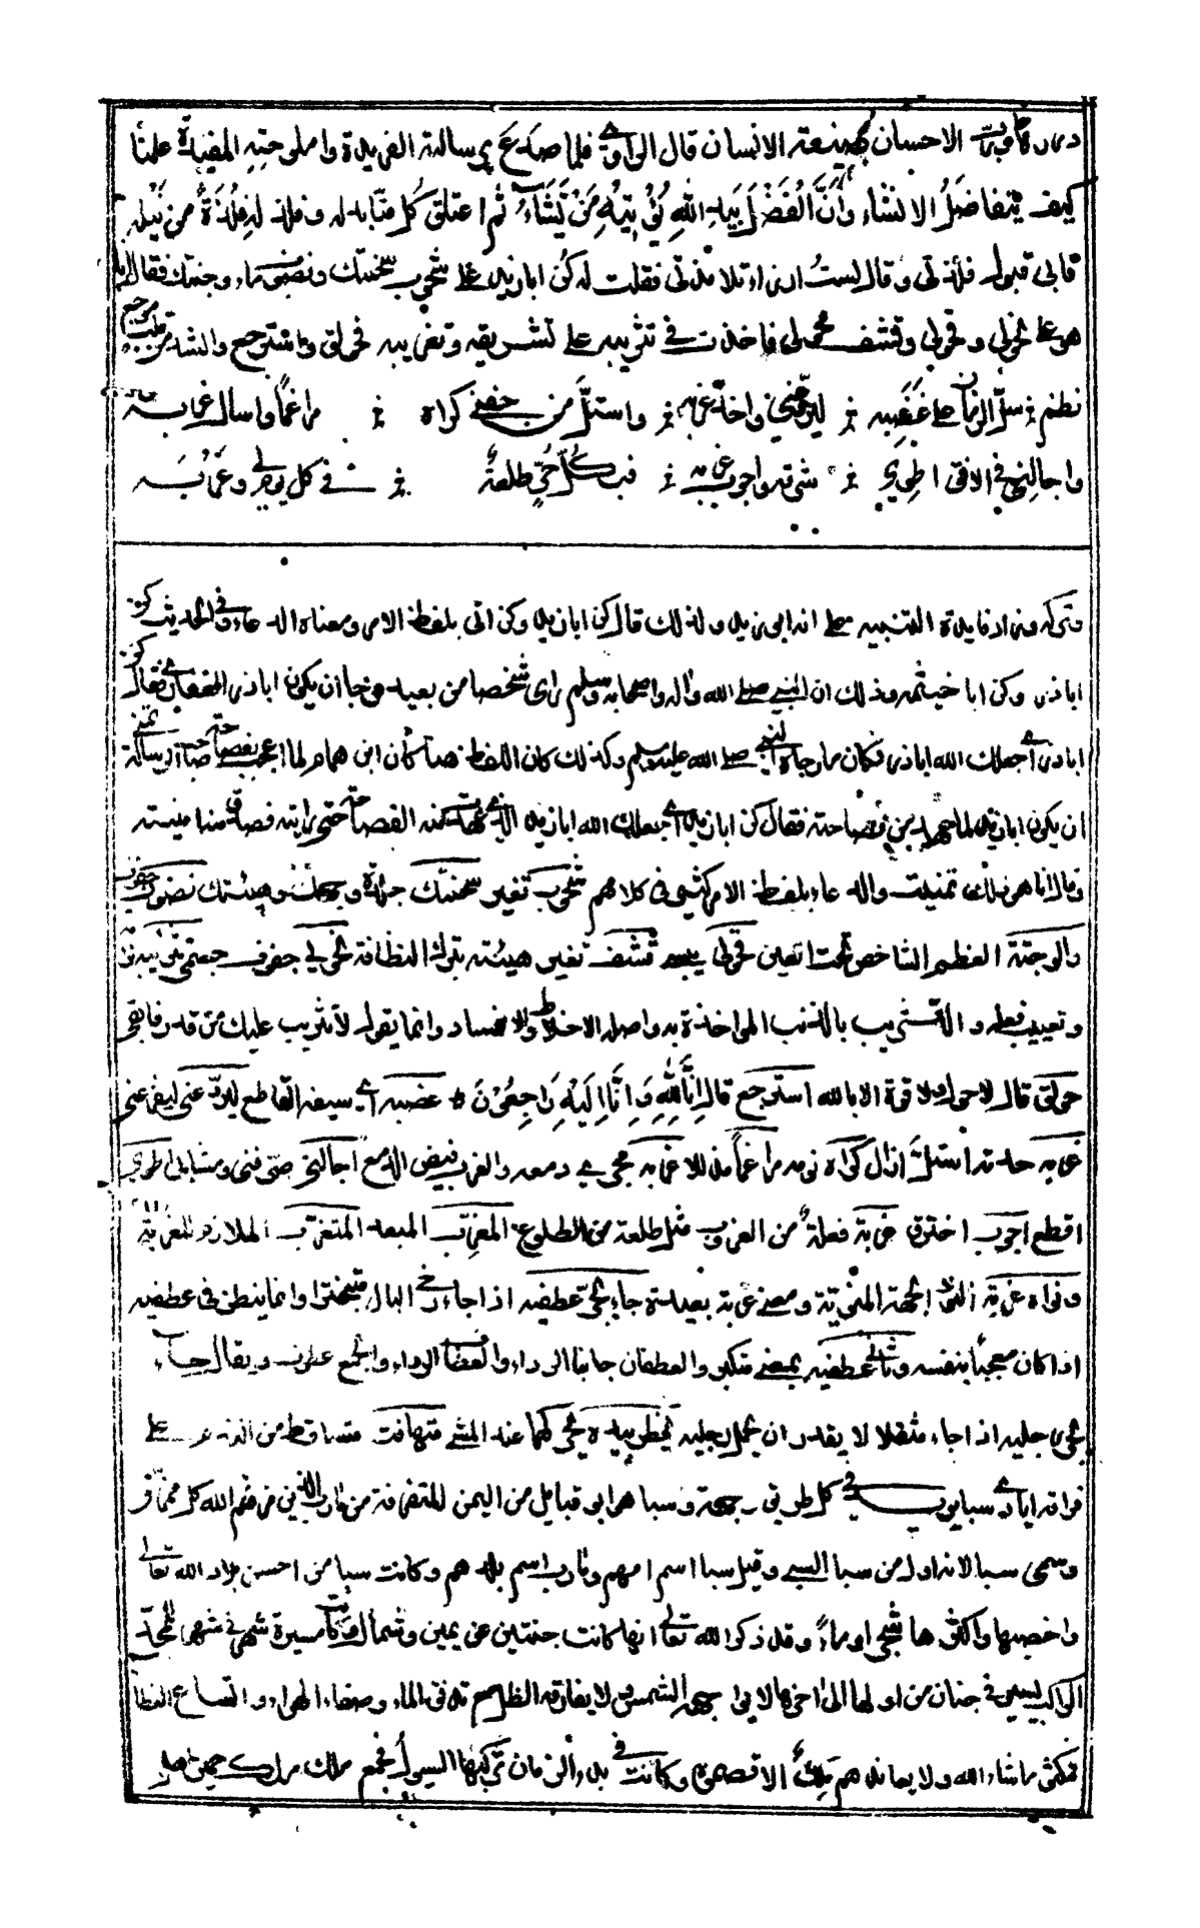 الاحسان صنيعة الانسان قال الراوي فلما صدع برسالته الفريدة واملوحته المفيدة علمنا
كيف يتفاضل الانشاء وَأَنَّ الْفَضْلَ بِيَدِ اللهِ يُؤْتِيهِ مَنْ يَشَاءُ ثم اعتلق كل منا بذيله وفلذ له فلذة من نيله
فابى قبول فلذتي وقال لست ارزأ تلامذتي فقلت له كن ابا زيد على شحوب سحنتك ونضوب ماء وجنتك فقال
هو على نحولي وقحولي وقشف محولي فاخذت في تثريبه على تشريقه وتغريبه فحولق واسترجع وانشد
نظم سل الزمان علي عضبه ليروعني واحد غربه واستل من جفني كراه مراغما واسال غربه
واجالني في الافق اطوي شرقه واجوب غربه فبكل جو طلعة في كل يوم لي وغربة
فايدة التنبيه على انه ابو زيد ولذلك قال كن ابا زيد وكن اتى بلفظ الامر ومعناه الدعاء وفي الحديث كن
ابا ذر وكن ابا خيثمة وذلك ان النبي صلى الله واله واصحابه وسلم راى شخصا من بعيد فرجا ان يكون ابا ذر الغفاري فقال كن
ابا ذر اي جعلك الله ابا ذر فكان ما رجاه النبي صلى الله عليه وسلم وكذلك كان اللفظ هنا كان ابن همام لما اعجب بفصاحة صاحب الرسالة تمنى
ان يكون ابا زيد لما من فصاحته فقال كن ابا زيد اي جعلك الله ابا زيد الفصاحة حتى رايته
وقال انا هو تمنيت والدعاء بلفظ الامر كثير في كلامهم شحوب تغير سحنتك جلدة وجهك وهيئتك نضوب جفوف
والوجنة العظم الشاخص تحت العين قحولي يبسه قشف تغير هيئته بترك النظافة محولي جفوف جسمي تثريبه
وتعييب فعله والتثريب بالذنب المواخذة به واصله الاختلاط والافساد وانما يقول لا تثريب عليك من قدر فابقى
حولق قال لا حول ولا قوة الا بالله استرجع قال إِنَّا لِلَّهِ وَإِنَّا إِلَيْهِ رَاجِعُونَ عضبه اي سيفه القاطع ليروعني ليفزعني
غربه حدته استل ازال كراه نومه مراغما مذلا غربه مجرى دمعه والغرب فيض الدمع اجالني اطوي
اقطع اجوب اخترق غربة فعلة من الغروب مثل طلعة من الطلوع المغرب المبعد المتغرب الملازم للغربة
ونواه غربة الجهة المنوية ومعنى غربة بعيدة جاء يجر عطفيه اذا جاء رخي البال متبخترا وانما ينظر في عطفيه
اذا كان معجبا بنفسه وثاني عطفيه بمعنى متكبر والعطفان جانبا الرداء والعطاف الرداء والجمع عطوف ويقال جاء
يجر رجليه اذا جاء مثقلا لا يقدر ان يحمل رجليه يخطر بيديه يحركهما عند المشي متهافت متساقط من على
فراقه ايادي سبا في كل طريق ووجهة وسبا هو ابو قبايل من اليمن المتفرقة من مارب الذين مزقهم الله كل ممزق
وسمي سبا لانه اول من سبا السبي وقيل سبا اسم امهم ومارب اسم بلدهم وكانت سبا من احسن بلاد الله تعالى
واخصبها واكثرها شجرا وماء وقد ذكر الله تعالى انها كانت جنتين عن يمين وشمال وكانت مسيرة شهر في شهر للمجد
الراكب يسير في جنان من اولها الى اخرها لا يواجهه الشمس ولا يفارقه الظل مع تدفق الماء وصفاء الهواء واتساع الفضا
فمكثوا ما شاء الله ولا يعاندهم ملك الا قصموه وكانت في بدء الزمان تركبها السيول فجمع ملك حمير